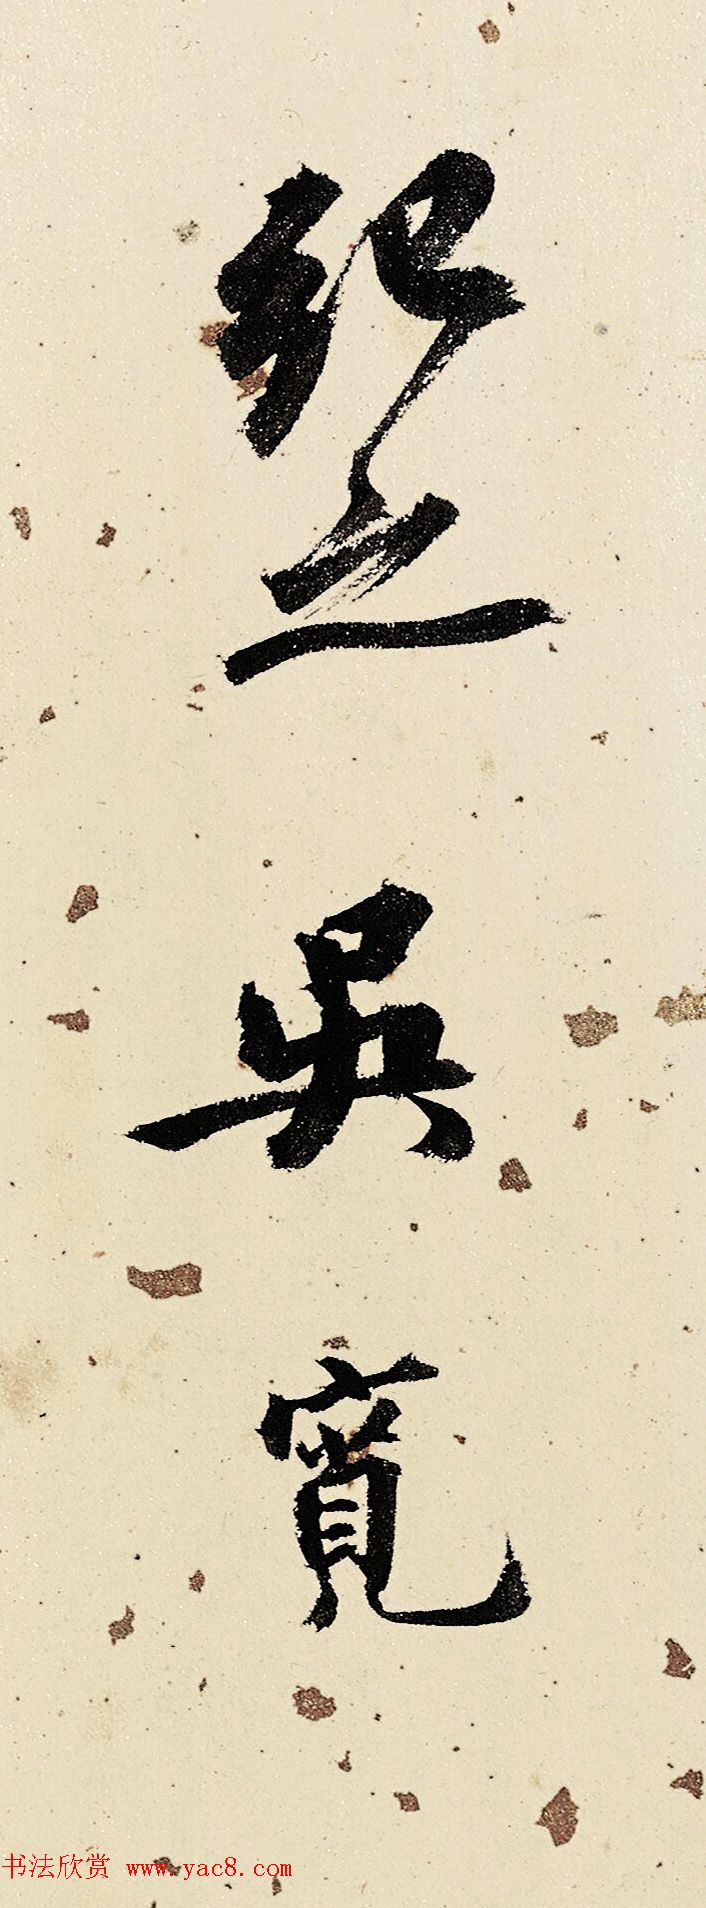 紀之吳寬
书法欣赏 www.yac8.com